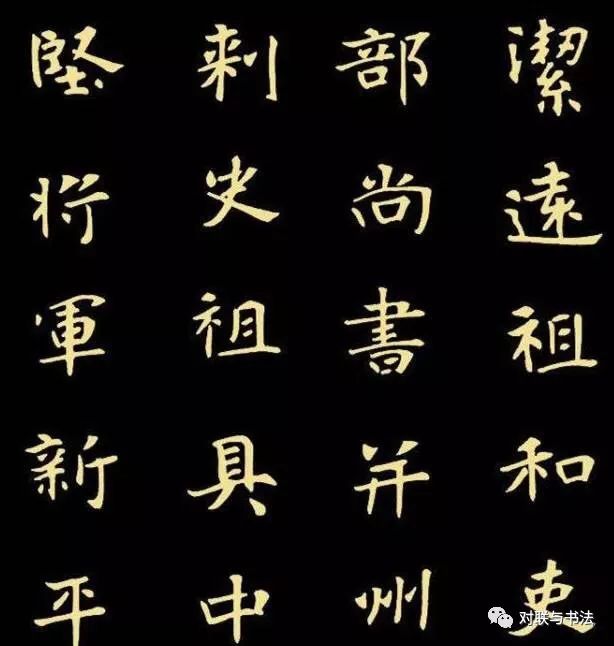 潔遠祖和吏
部尚書并州
刺史祖具中
堅将軍新平
对联与书法